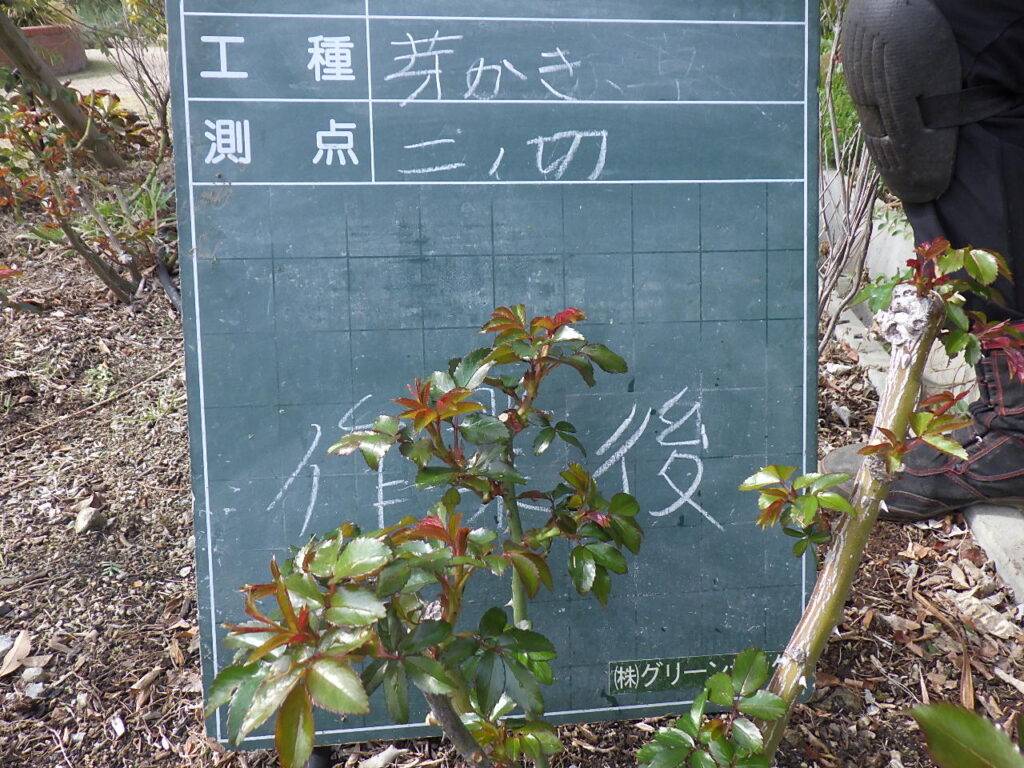 工種 芽かき
測点 二ノ切
作業後
(株)グリーン